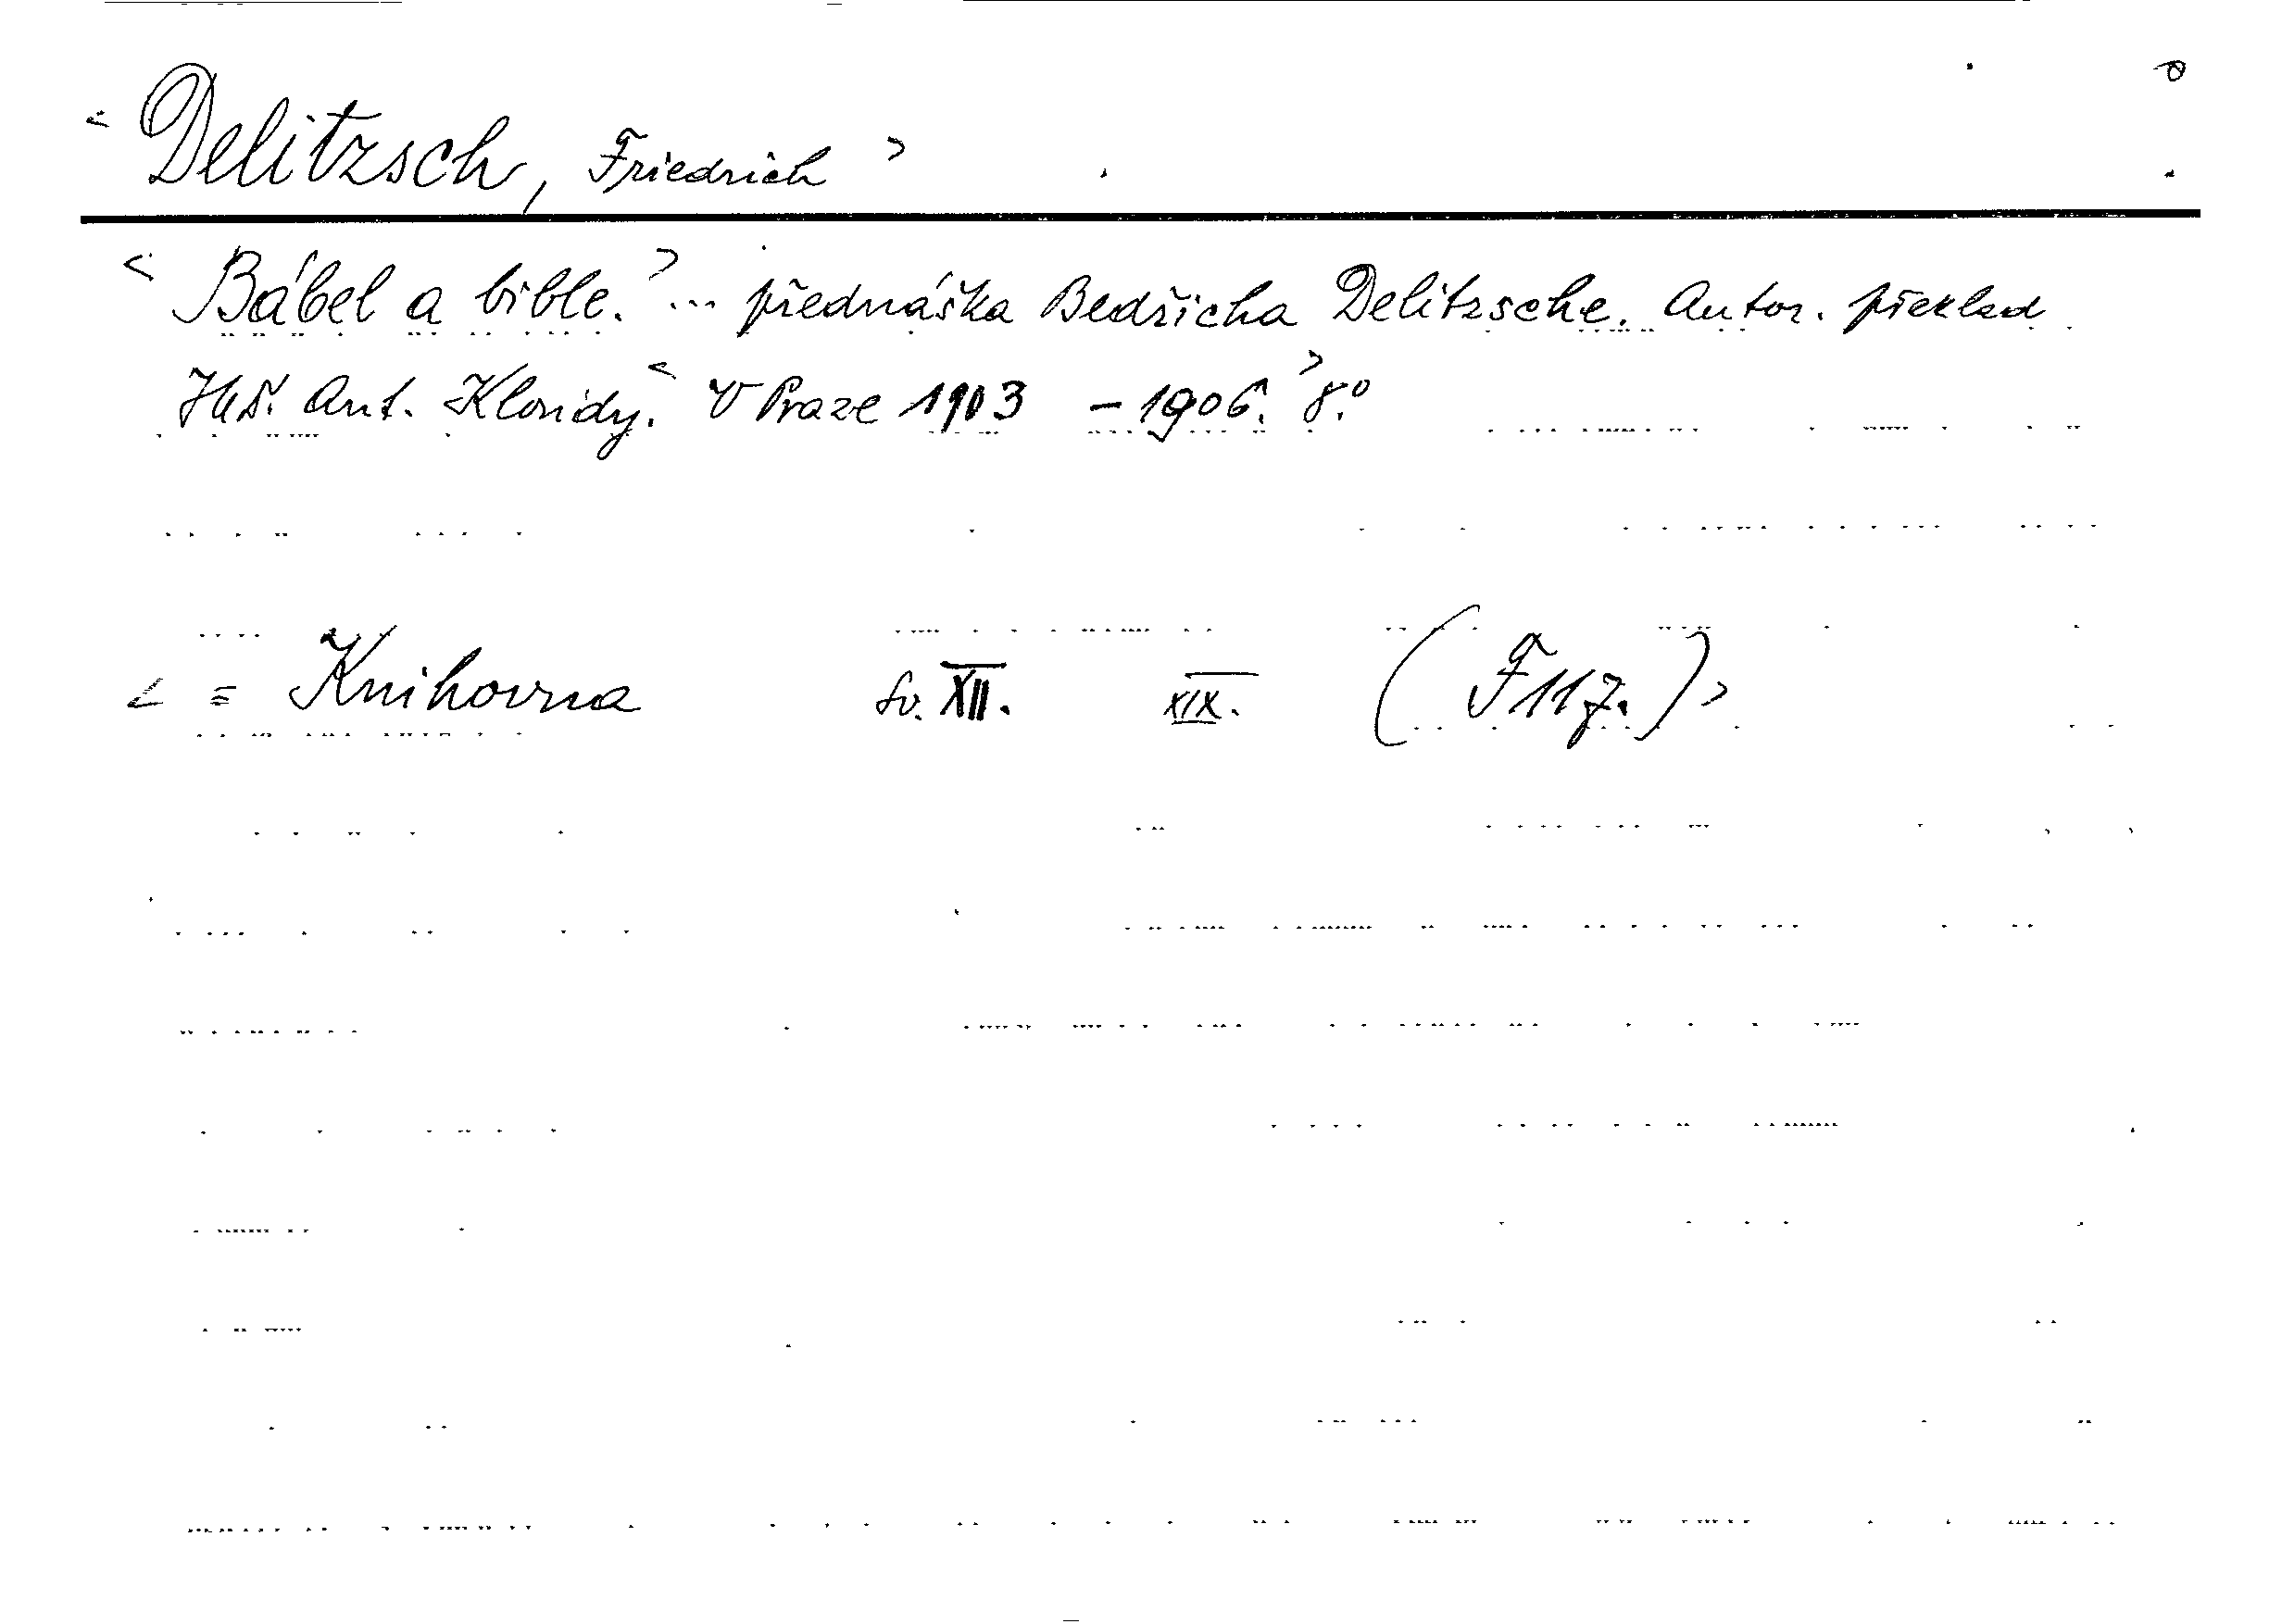 < Delitzsch, Friedrich >
< Bábel a bible. > ... přednáška Bedřicha Delitzsche. Autor. překlad
Ant. Kloudy. < V Praze 1903 - 1906. > 8.°
< = Knihovna sv. XII. XIX. ( F 117. ) >